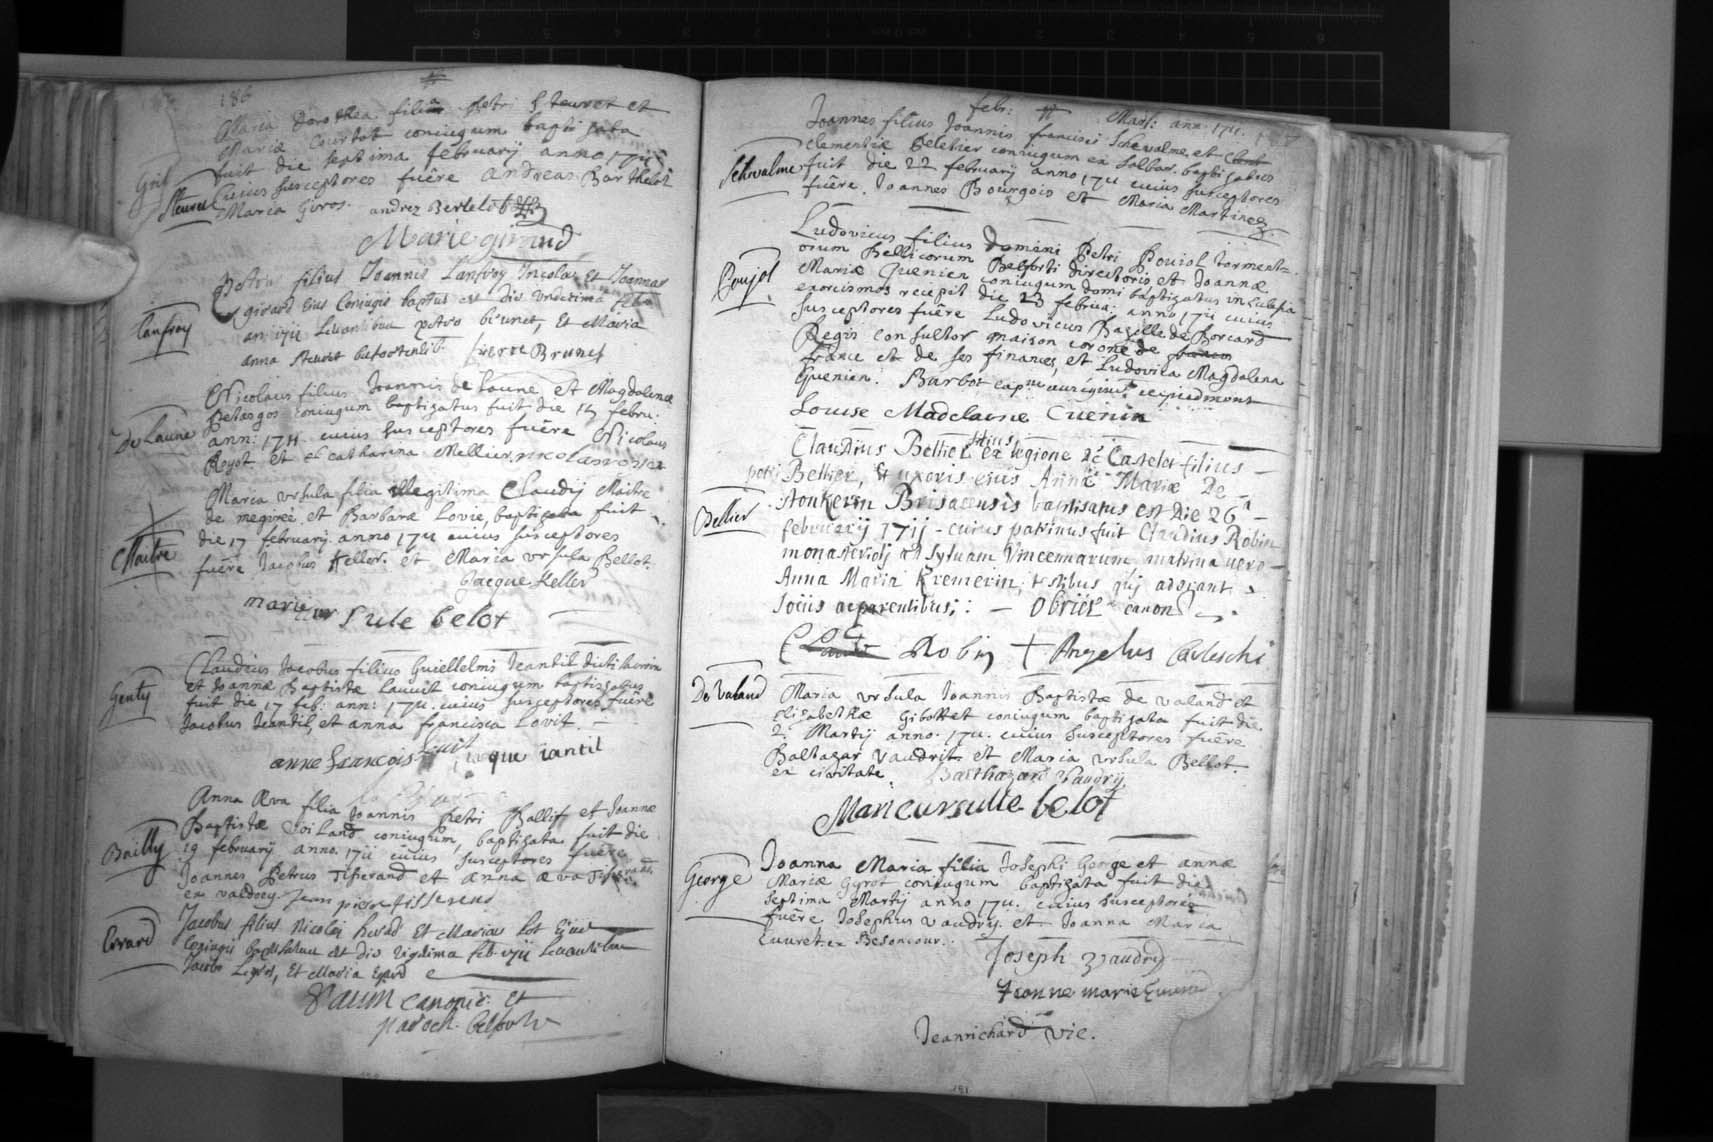 186
Maria Dorothea filia Petri Steuret et
Mariæ Courtot coniugum baptisata
fuit die septima februarij anno 1711
Steuret cuius susceptores fuêre Andreas Barthelot
Maria Giros. andrez Bertelot
Marie girard
filius Joannis Lanfroy Incolæ Et Joannæ
girard eius Coniugis baptus est die undecima feb.
Lanfroy an. 1711 Levantibus petro brunet, Et Maria
anna Steuret belfortensib. pierre Brunet
Nicolaus filius Joannis de Laune et Magdalenæ
coniugum baptizatus fuit die 14 febru.
De Laune ann: 1711 cuius susceptores fuêre Nicolaus
Royot et Catharina Mellier.
Maria Ursula filia illegitima Claudij Maitre
de megiree et Barbaræ Lovie, baptizata fuit
Maitre die 17 february. anno 1711 cuius susceptores
fuêre Jacobus Keller. et Maria Ursula Bellot.
Jacque Keller
marie ur sule belot
Claudius Jacobus filius Guillelmi Jeantil dicti
et Joannæ Baptistæ Lauvit coniugum baptizatus
Genty fuit die 17 feb: ann: 1711. cuius susceptores fuêre
Jacobus Jeantil, et anna francisca Lovit.
anne francois jaque iantil
Anna Æva filia Joannis Petri Ballif et Joannæ
Baptistæ coniugum, baptizata fuit die
Bailly 19 february anno. 1711 cuius susceptores fuêre
Joannes Petrus Tisserand et anna æva
ex valdoey. Jean pierre tisserend
Errard Jacobus filius Nicolai herad Et Mariæ Lot Ejus
Coniugis baptisatus est die vigesima feb. 1711 Levantibus
Jacobo Et Maria
canonic: et
paroch. belfort

feb: Mart: ann: 1711.
Joannes filius Joannis francisci Schevalme, et
clementiæ Pelctier coniugum ex baptizatus
Schwalme fuit die 22 february anno 1711 cuius susceptores
fuêre. Joannes Bourgois et Maria Martinez.
Ludovicus filius Domini Petri Poujol tormenta-
orum Bellicorum Belforti directoris et Joannæ
Poujol Mariæ Quenien coniugum domi baptizatus in Ecclesia
exorcismos recepit die 23 februa: anno 1711 cuius
susceptores fuêre Ludovicus Bazille de Borcard
Regis consultor maison corone de
france et de ses finances, et Ludovica Magdalena
Quenien. Barbot cap.ne
Louise Madelaine Cuenin
Claudius Bellier ex legione de Castelet filius
petri Bellier, & uxoris ejus Annæ Mariæ De
Bellier Stonkerin Brisacensis baptisatus est Die 26a
februarij 1711 - cuius patrinus fuit Claudius Robin
monasteriolj ad Sylvam Vincennarum, matrina vero
Anna Maria Kremerin, testibus qui aderant
sociis ac parentibus; Obriet canon
Claude Robin + Angelus Carleschi
De Valand Maria Ursula Joannis Baptistæ de Valand et
Elisabethæ Gibottet coniugum baptizata fuit die
2. Martij anno. 1711. cuius susceptores fuêre
Baltazar Vaudrit et Maria Ursula Bellot.
ex civitate. Balthazard Vaudry
Marie ursulle belot
Joanna Maria filia Josephi George et annæ
George Mariæ Gyrot coniugum baptizata fuit die
septima Martij anno 1711. cuius susceptores
fuêre Josephus Vaudry. et Joanna Maria
Cuuret. ex Besoncour.
Joseph Vaudry
Jeanne marie
Jeanrichard vic.